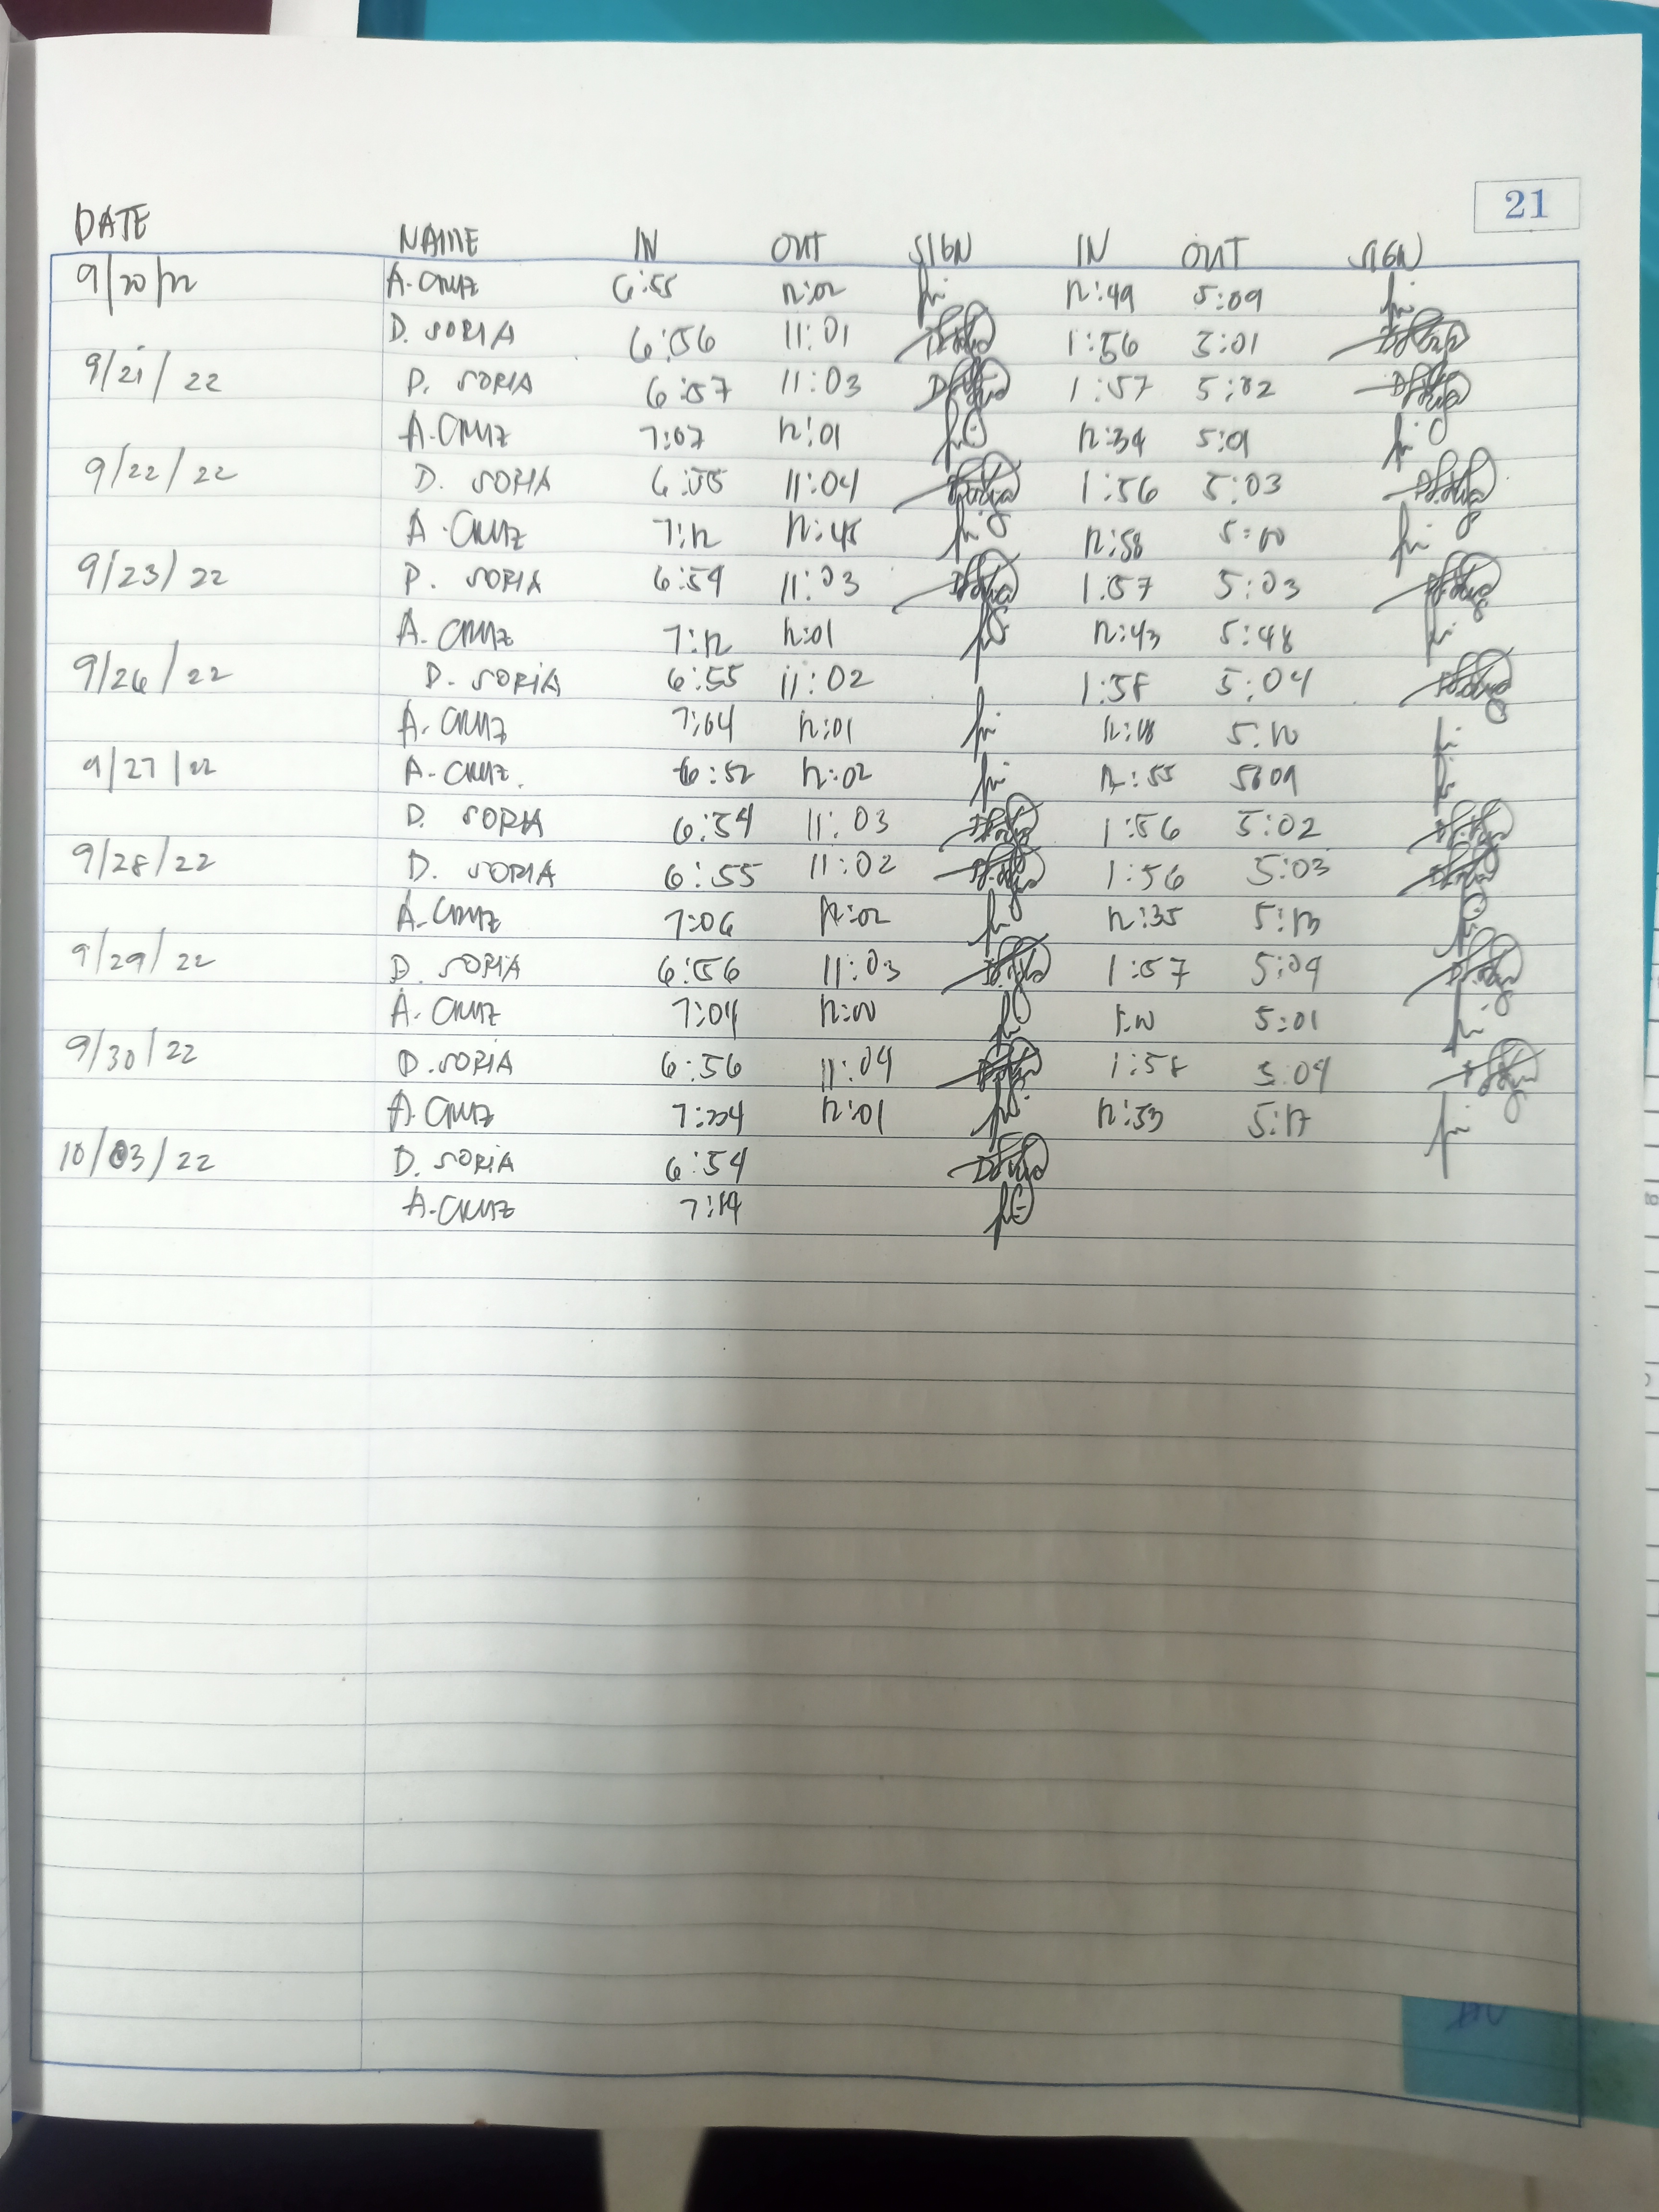 21
DATE NAME IN OUT SIGN IN OUT SIGN
9/20/22 A. CRUZ 6:55 12:02 12:49 5:09
D. SORIA 6:56 11:01 1:56 5:01
9/21/22 D. SORIA 6:57 11:03 1:57 5:02
A. CRUZ 7:07 12:01 12:34 5:01
9/22/22 D. SORIA 6:55 11:04 1:56 5:03
A. CRUZ 7:12 12:45 12:58 5:00
9/23/22 D. SORIA 6:54 11:03 1:57 5:03
A. CRUZ 7:12 12:01 12:43 5:48
9/26/22 D. SORIA 6:55 11:02 1:58 5:04
A. CRUZ 7:04 12:01 5:10
9/27/22 A. CRUZ. 6:52 12:02 12:55
D. SORIA 6:54 11:03 1:56 5:02
9/28/22 D. SORIA 6:55 11:02 1:56 5:03
A. CRUZ 7:06 12:02 12:35 5:13
9/29/22 D. SORIA 6:56 11:03 1:57 5:04
A. CRUZ 7:04 12:00 5:01
9/30/22 D. SORIA 6:56 11:04 1:58 5:04
A. CRUZ 12:01 12:53 5:17
10/03/22 D. SORIA 6:54
A. CRUZ 7:14